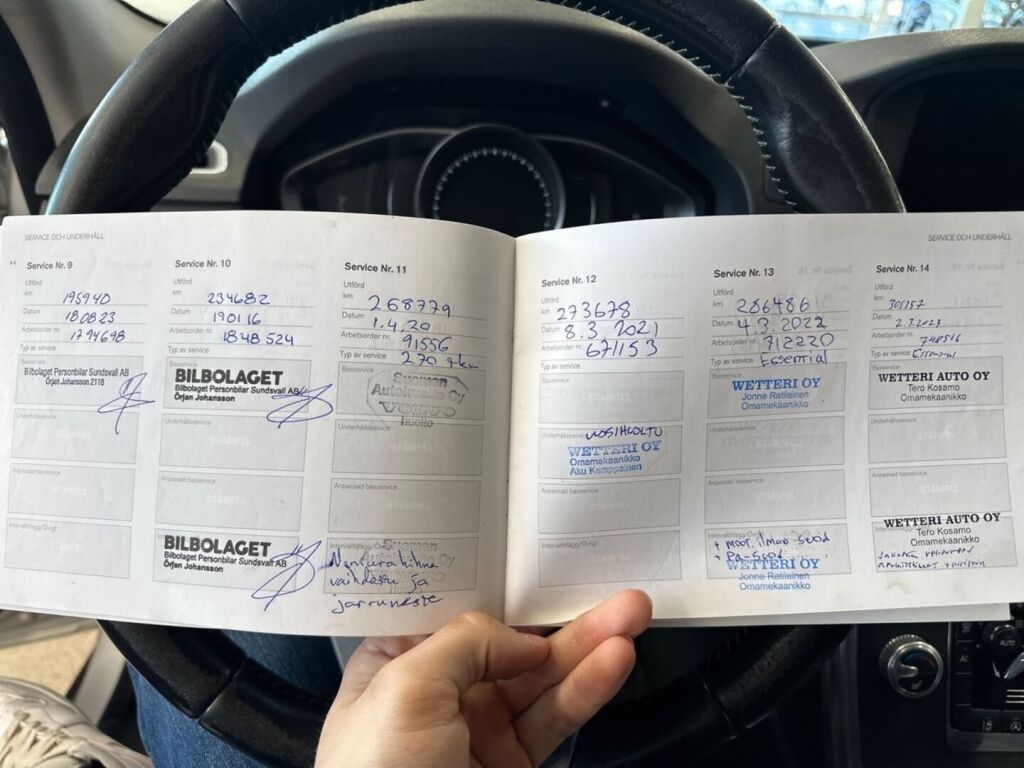 SERVICE OCH UNDERHÅLL
Service Nr. 9
Utförd
km 195940
Datum 180823
Arbetsorder nr. 1794698
Typ av service
Basservice
Bilbolaget Personbilar Sundsvall AB
Örjan Johansson 2118
Underhållsservice
STÄMPEL
Anpassad basservice
STÄMPEL
Intervalltillägg/Övrigt
Service Nr. 10
Utförd
km 234682
Datum 190116
Arbetsorder nr. 1848524
Typ av service
BILBOLAGET
Bilbolaget Personbilar Sundsvall AB
Örjan Johansson
Underhållsservice
STÄMPEL
Anpassad basservice
STÄMPEL
BILBOLAGET
Bilbolaget Personbilar Sundsvall AB
Örjan Johansson
Service Nr. 11
Utförd
km 268779
Datum 1.4.20
Arbetsorder nr. 91556
Typ av service 270 tkm
Basservice
Suomen
Autohuolto Oy
VOLVO
huolto
Underhållsservice
Anpassad basservice
Intervalltillägg/Övrigt
vaihdettu ja
jarruneste
SERVICE OCH UNDERHÅLL
Service Nr. 12
Utförd
km 273678
Datum 8.3.2021
Arbetsorder nr. 671153
Typ av service
Basservice
Underhållsservice VUOSIHUOLTO
WETTERI OY
Omamekaanikko
Aku Kemppainen
Anpassad basservice
Intervalltillägg/Övrigt
Service Nr. 13
Utförd
km 286486
Datum 4.3.2022
Arbetsorder nr. 712220
Typ av service Essential
Basservice
WETTERI OY
Jonne Ratilainen
Omamekaanikko
Underhållsservice
Anpassad basservice
+ moot. ilman suod
+ Pa-suod
WETTERI OY
Jonne Ratilainen
Omamekaanikko
Service Nr. 14
Utförd
km 301157
Datum 2.3.2023
Arbetsorder nr. 748516
Typ av service Essential
WETTERI AUTO OY
Tero Kosamo
Omamekaanikko
Underhållsservice
Anpassad basservice
WETTERI AUTO OY
Tero Kosamo
Omamekaanikko